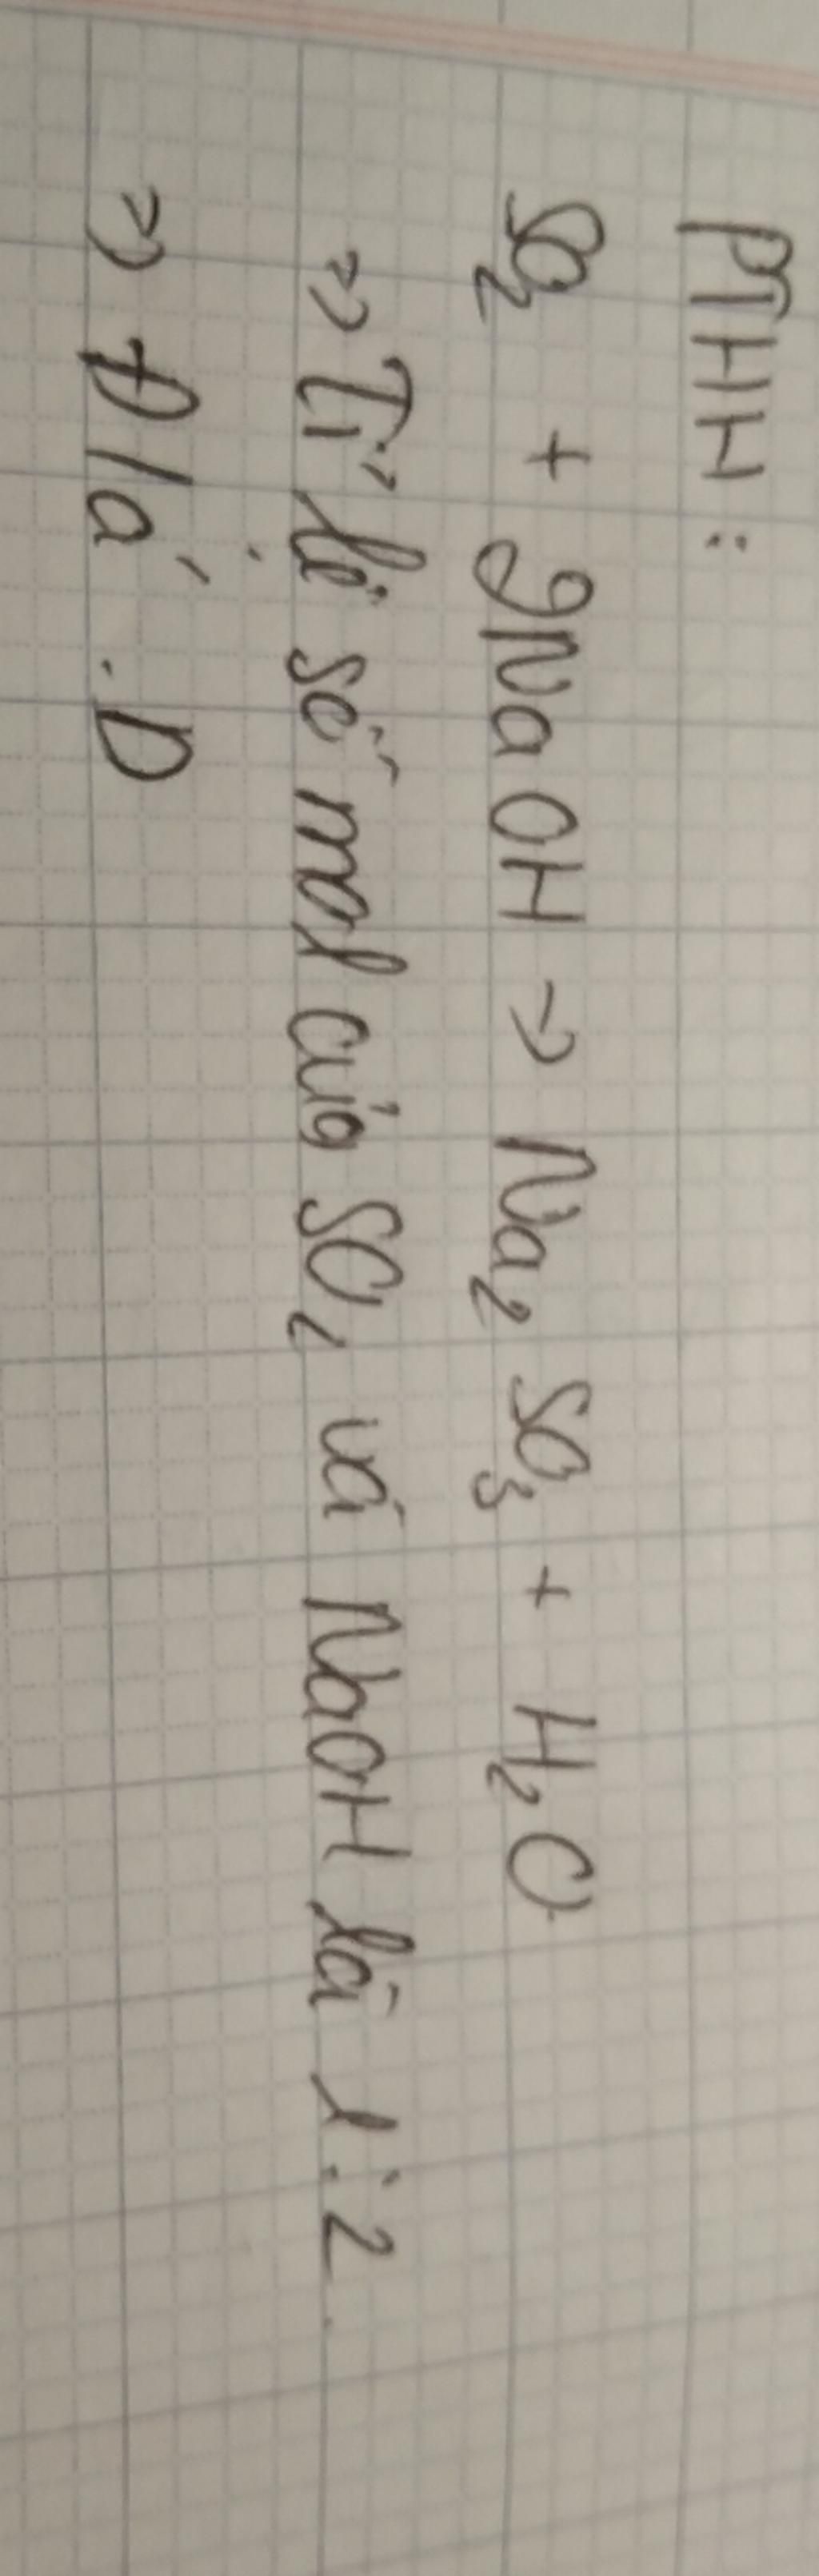 PTHH:
SO₂ + 2NaOH → Na₂SO₃ + H₂O
=> Tỉ lệ số mol của SO₂ và NaOH là 1:2.
=> Đ/á: D